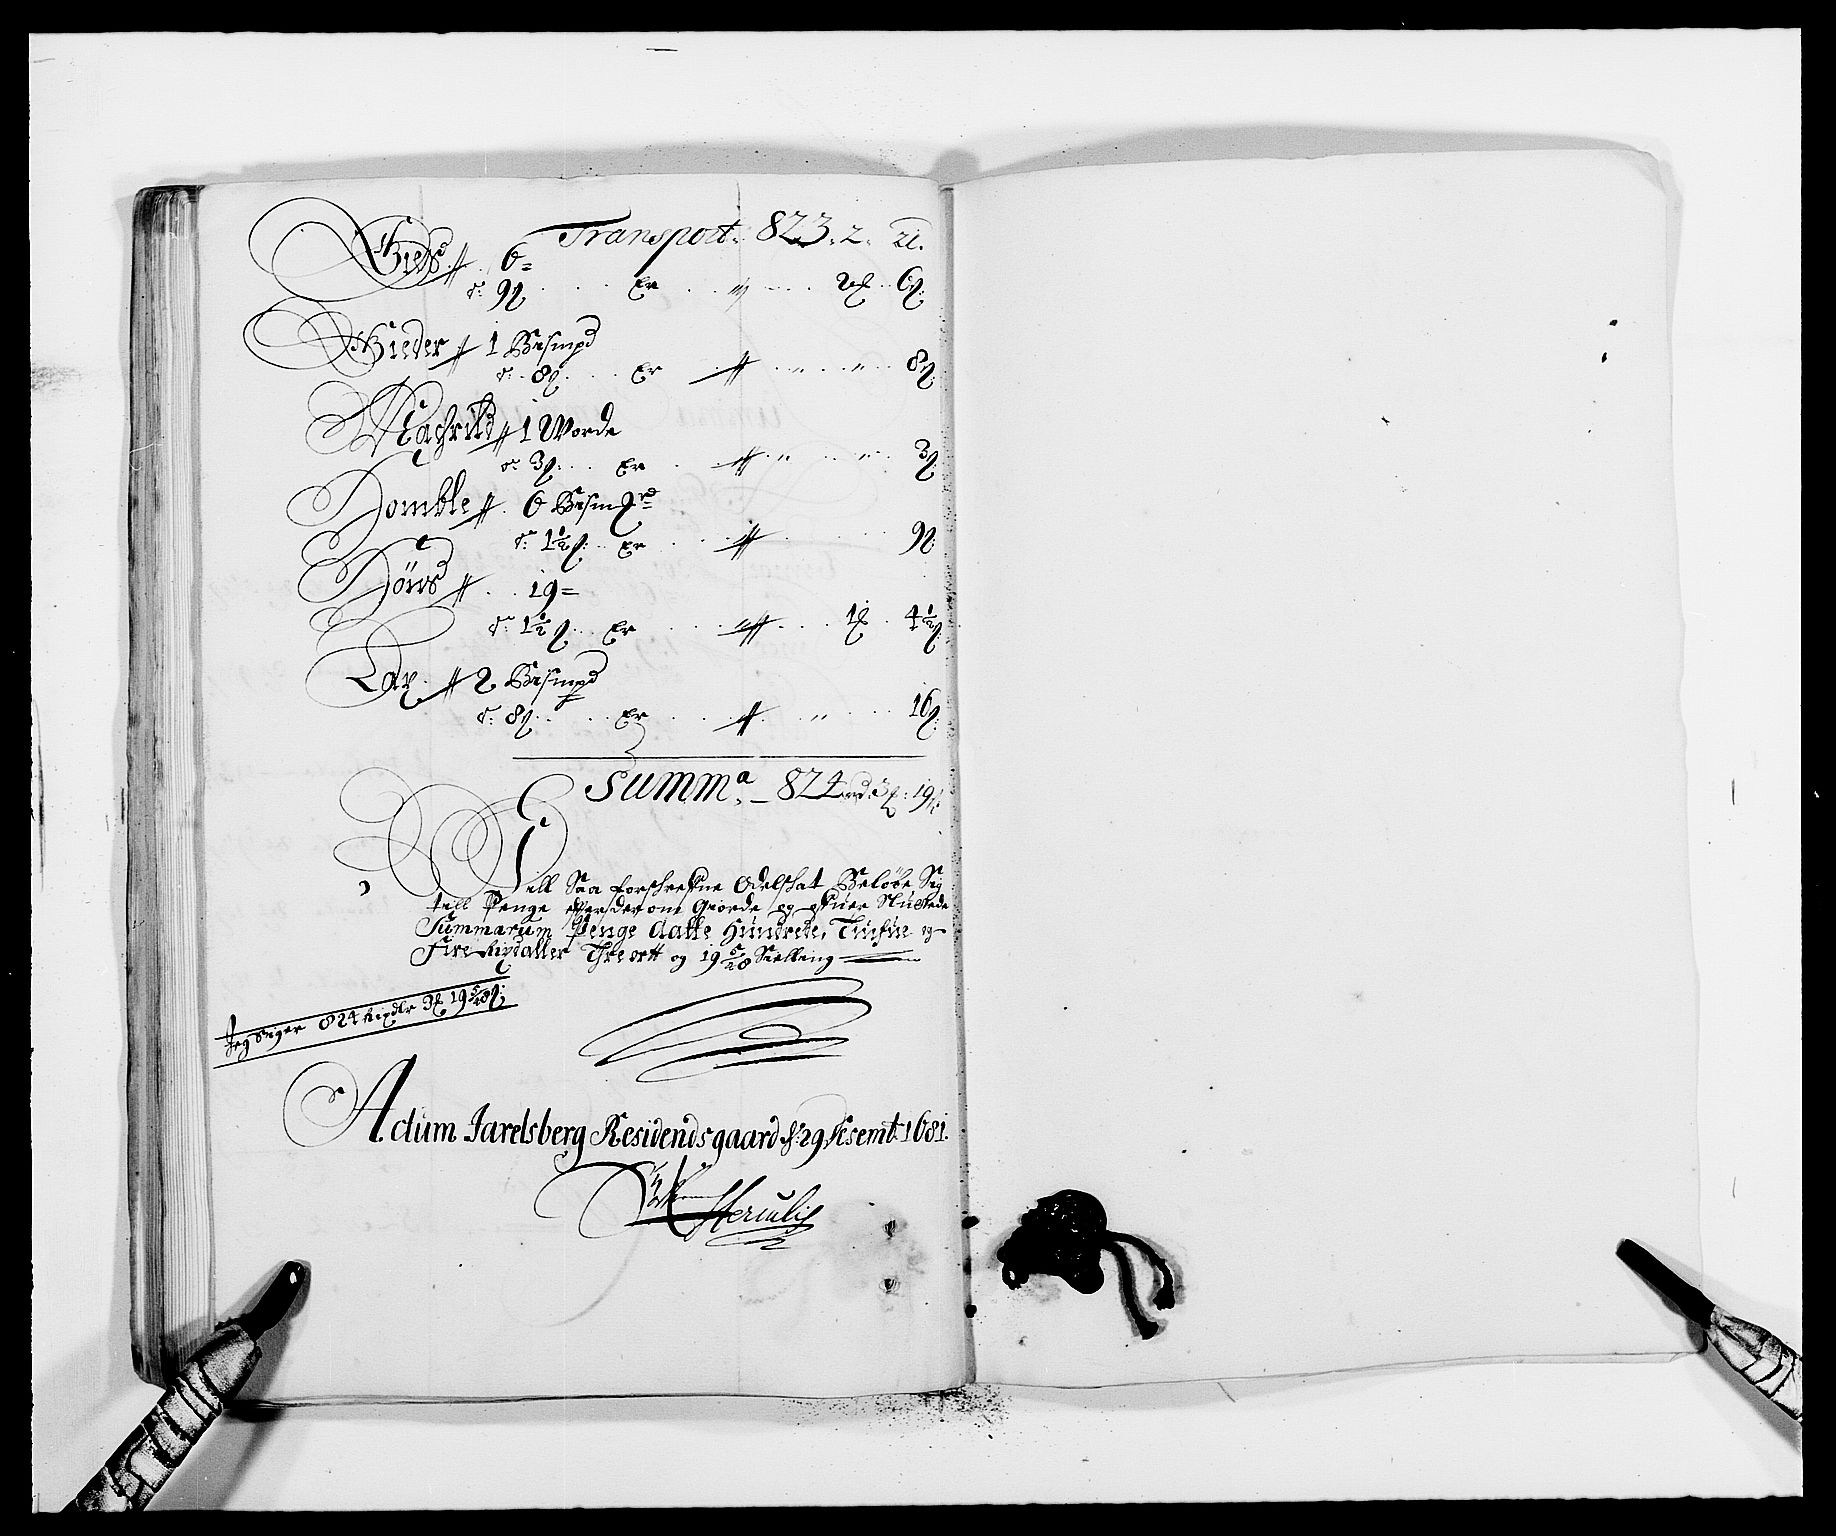 Transport. 823. 2. 21.
Giess 6 =
a: 9 ß . . . Er . . . 2 ß 6 ß
Smør 1 Bismpd
a: 8 ß . . . Er . . . 8 ß
1 Worde
a: 3 ß . . . Er . . . 3 ß
Homble 6 Bismprd
a: 1½ ß . . Er . . . 9 ß
Höns . . 19 =
a: 1½ ß . . Er . . . 1 . 4½ ß
Lax 2 Bismpd
a: 8 ß . . . Er . . . 16 ß
Summa. – 824 rd 3 : 19
Till Saa forschrefne Odelskat Beløbe Sig
till Penge efftersom Giorde og
Summarum Penge Aatte Hundrede, Tiufue og
Fire Rixdaller Thre ortt og 19 5/28 Skelling
Jeg siger 824 Rixdlr 3 19 5/28 ß
Actum Jarelsberg Residendsgaard d: 29 Desemb: 1681.
Herculis